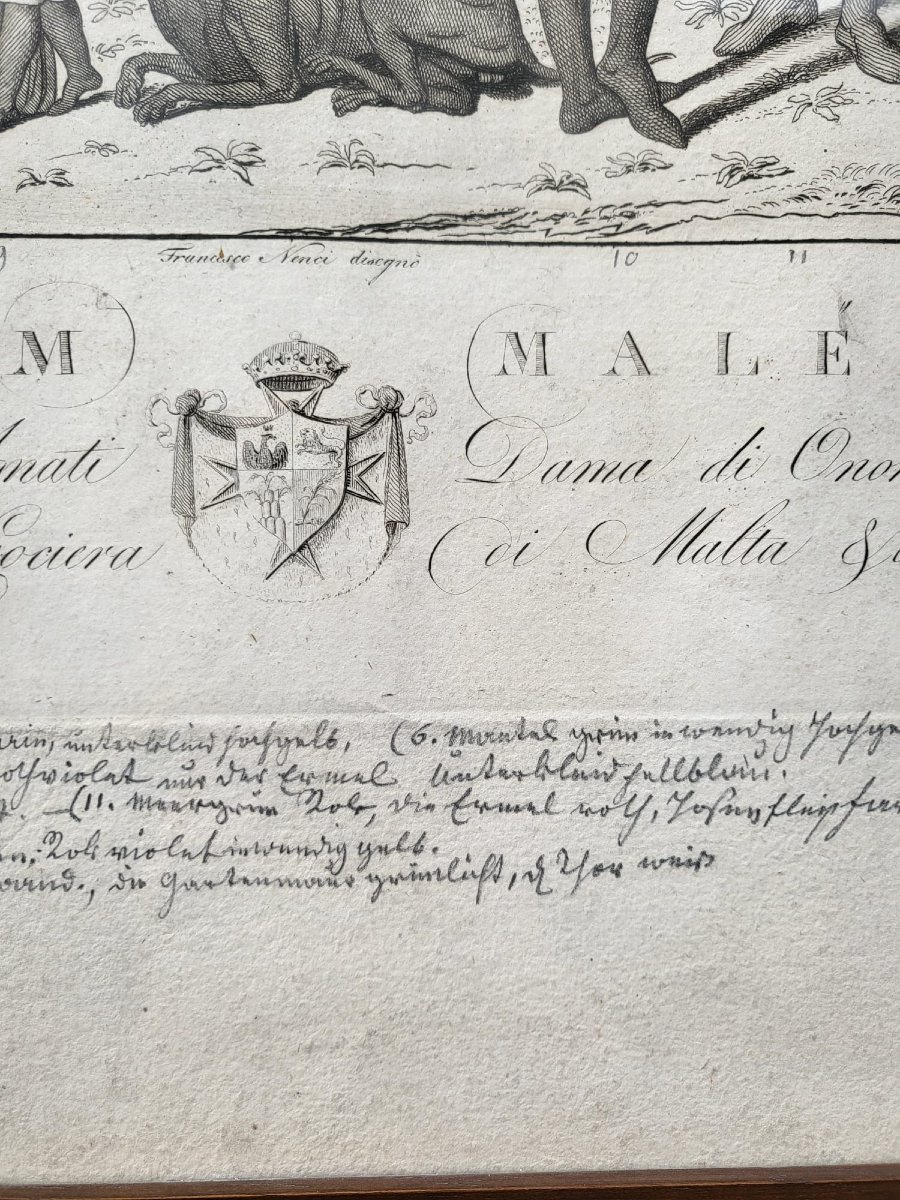 9 Francesco Nenci disegnò 10 11
M MALÉ
gnati Dama di Onor
ociera di Malta &
unterkleid hochgelb, (6. Mantel grün inwendig hochge
othviolet nur der Ermel Unterkleid hellblau.
(11. Meergrün Rok, die Ermel roth,
Rok violet inwendig gelb.
wand., die Gartenmauer grünlicht, d Thor weis